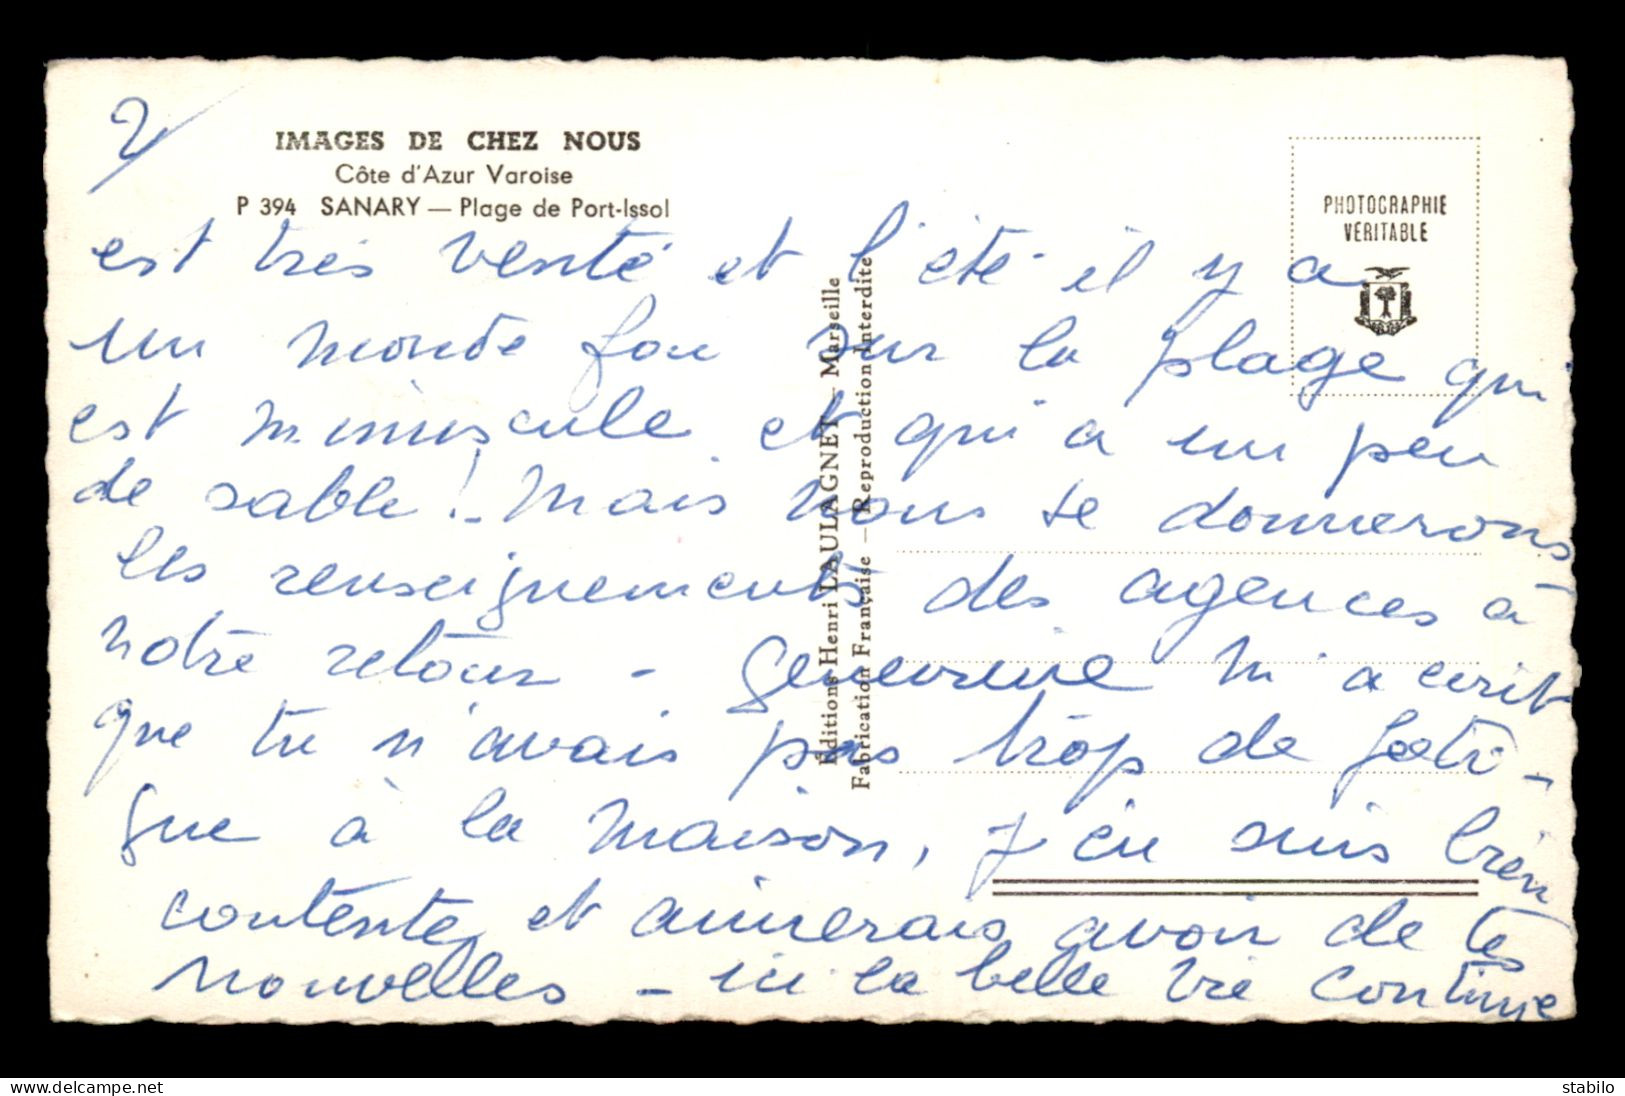 2/
IMAGES DE CHEZ NOUS
Côte d'Azur Varoise
P 394 SANARY — Plage de Port-Issol
PHOTOGRAPHIE
VERITABLE
est très venté et l'été il y a
un monde fou sur la plage qui
est minuscule et qui a un peu
de sable ! - Mais nous te donnerons
les renseignements des agences à
notre retour - Geneviève m'a écrit
que tu n'avais pas trop de fati-
gue à la maison, j'en suis bien
contente et aimerais avoir de tes
nouvelles - ici la belle vie continue
Éditions Henri LAULAGNET — Marseille
Fabrication Française — Reproduction Interdite
delcampe.net
stabilo